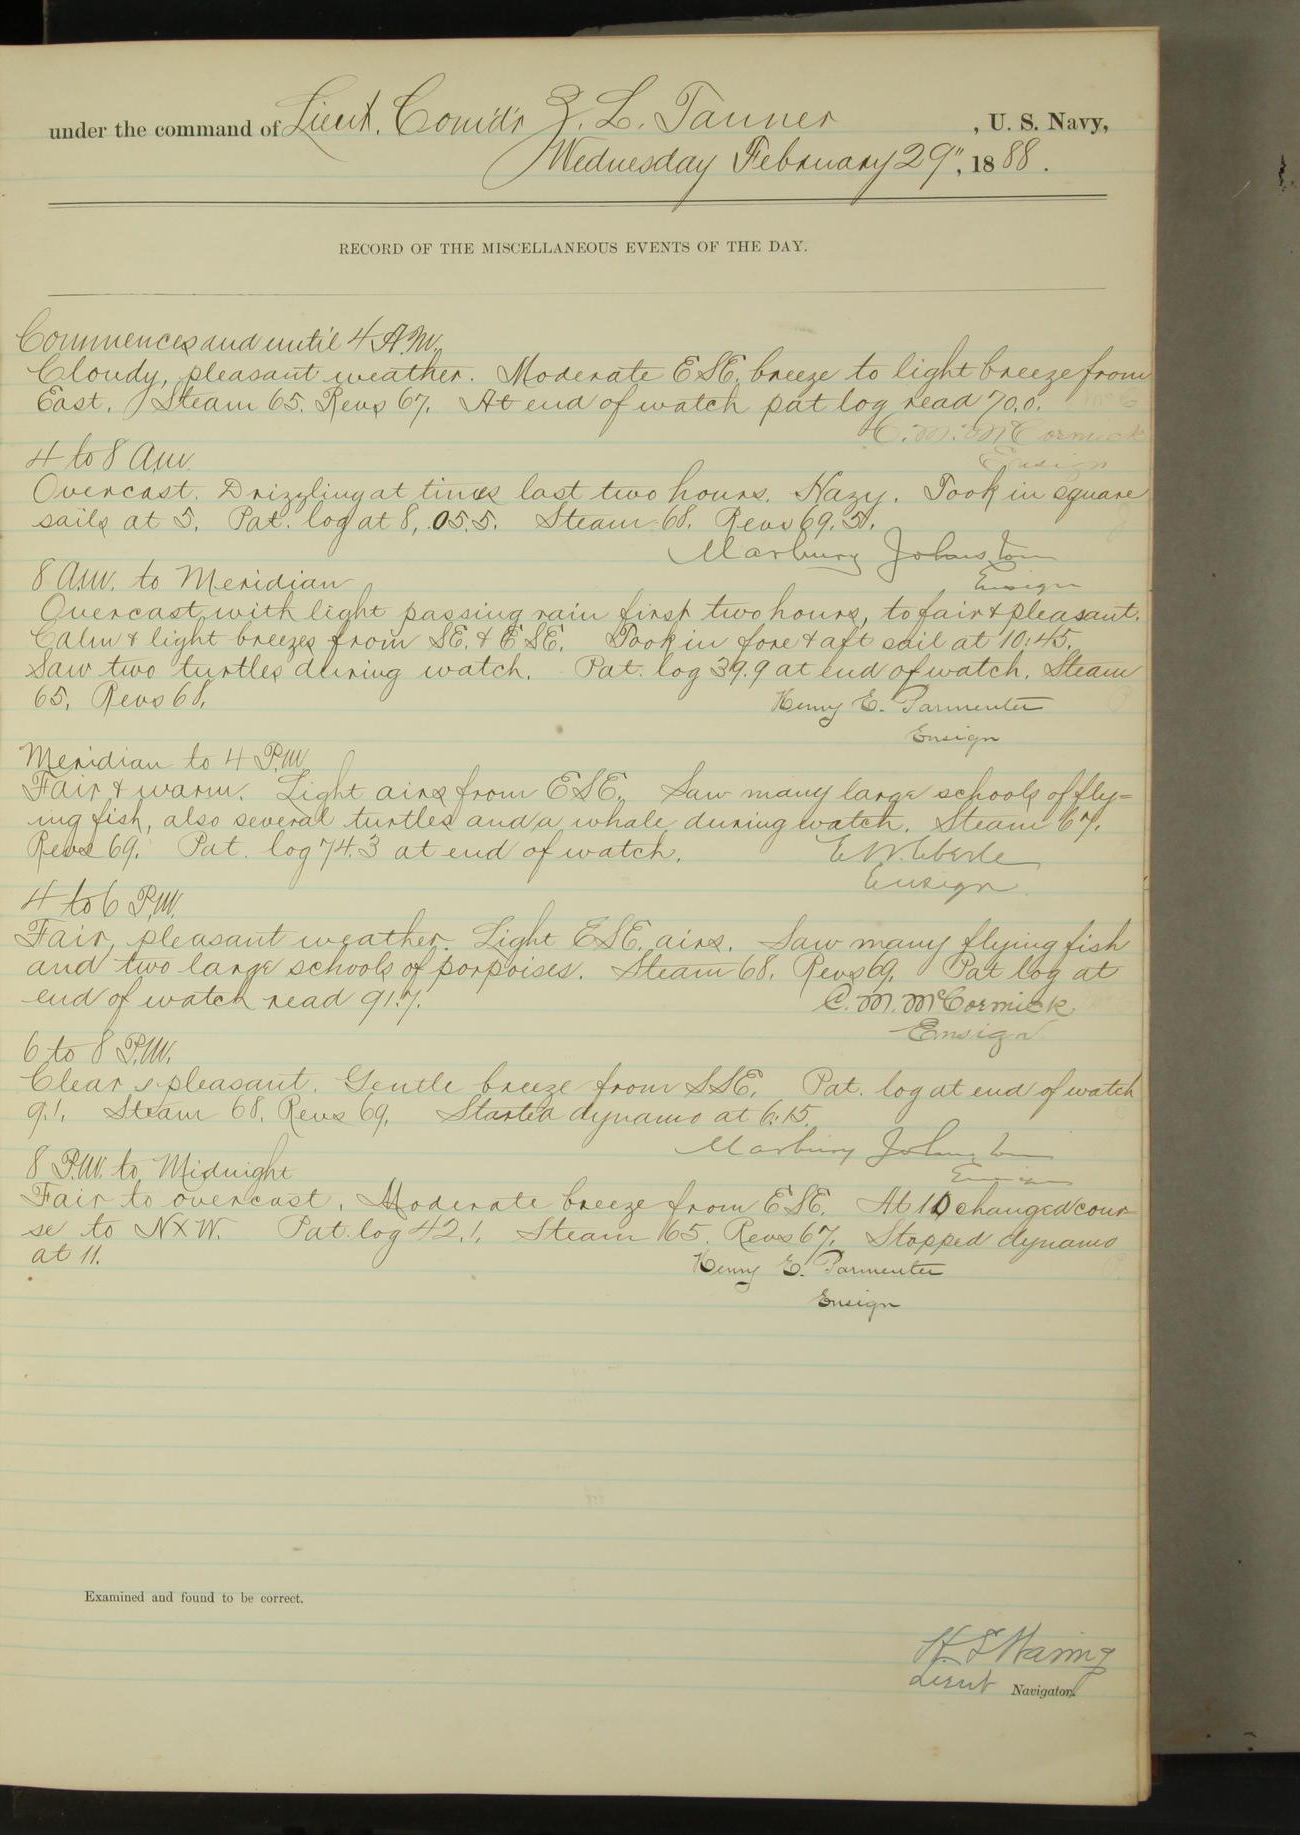 under the command of Lieut. Comd'r Z. L. Tanner, U. S. Navy,
Wednesday February 29", 1888.
RECORD OF THE MISCELLANEOUS EVENTS OF THE DAY.
Commences and until 4 A.M.
Cloudy, pleasant weather. Moderate ESE. breeze to light breeze from
East. Steam 65. Revs 67. At end of watch pat log read 70.0.
C. M. McCormick
Ensign
4 to 8 A.M.
Overcast. Drizzling at times last two hours. Hazy. Took in square
sails at 5. Pat. log at 8, 05.5. Steam 68. Revs 69.5.
Marbury Johnston
Ensign
8 A.M. to Meridian
Overcast with light passing rain first two hours, to fair & pleasant.
Calm & light breezes from SE. & ESE. Took in fore & aft sail at 10:45.
Saw two turtles during watch. Pat. log 39.9 at end of watch. Steam
65. Revs 68.
Henry E. Parmenter
Ensign
Meridian to 4 P.M.
Fair & warm. Light airs from ESE. Saw many large schools of fly=
ing fish, also several turtles and a whale during watch. Steam 67.
Revs 69. Pat. log 74.3 at end of watch.
E. W. Eberle
Ensign
4 to 6 P.M.
Fair, pleasant weather. Light ESE. airs. Saw many flying fish
and two large schools of porpoises. Steam 68. Revs 69. Pat log at
end of watch read 91.7.
C. M. McCormick
Ensign
6 to 8 P.M.
Clear & pleasant. Gentle breeze from SSE. Pat. log at end of watch
9.1. Steam 68. Revs 69. Started dynamo at 6:15.
Marbury Johnston
Ensign
8 P.M. to Midnight
Fair to overcast. Moderate breeze from ESE. At 10 changed cour
se to NxW. Pat. log 42.1. Steam 65. Revs 67. Stopped dynamo
at 11.
Henry E. Parmenter
Ensign
Examined and found to be correct.
H. S. Waring
Lieut Navigator.